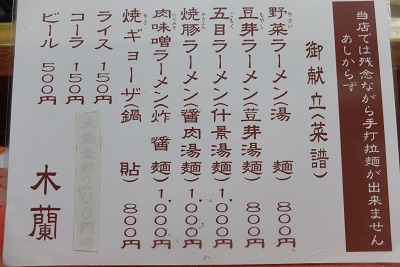 当店では残念ながら手打拉麵が出来ません
あしからず
御献立(菜譜)
野菜ラーメン(湯麺) 800円
豆芽ラーメン(荳芽湯麺) 800円
五目ラーメン(什景湯麺) 1.000円
焼豚ラーメン(醤肉湯麺) 1.000円
肉味噌ラーメン(炸醤麺) 1.000円
焼ギョーザ(鍋貼) 800円
ライス 150円
コーラ 150円
ビール 500円
大盛全部200円増
木蘭